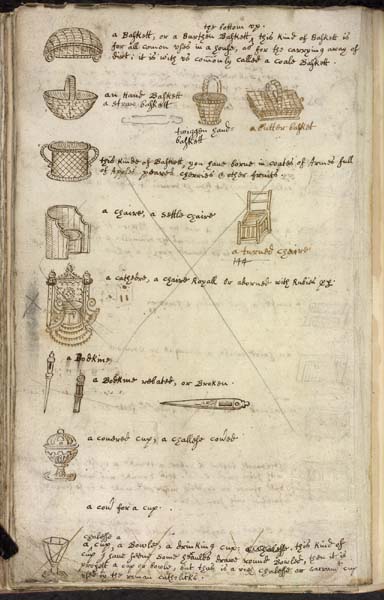 the bottom vp.
a Baskett, or a Basket, this kind of Baskett is
for all comon vses in a house, as for the carrying away of
durt; it is with vs comonly called a Coale Baskett.
an Hand Baskett
a straw baskett
twiggen hand
baskett
a flatter basket
this kinde of Baskett, you have borne in coates of Armes full
of Apples peares cherries & other fruits
a chaire, a settle chaire
a turned chaire
144
a cathedre, a chaire Royall or adorned with Rubies
a Bodkine
a Bodkine rebated, or Broken.
a covered cup, a challese coued
a cour for a cup.
challese a
a cup, a Bowle, a drinking cup: this kind of
cup I have seene some heaulds drawe round Bowled, then it is
a cup or bowle, but this is a challese or sacramt cup
vsed by the roman catholicks.